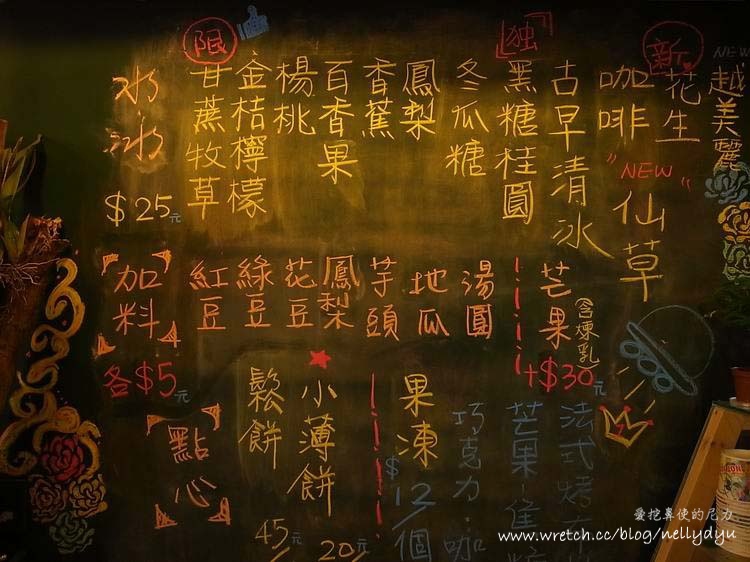 NEW
越美麗
新
花生
咖啡
"NEW"
仙草
古早清冰
独
黑糖桂圓
冬瓜糖
鳳梨
香蕉
百香果
楊桃
限
金桔檸檬
甘蔗牧草
冰
$25元
芒果(含煉乳)
+$30元
湯圓
地瓜
芋頭
鳳梨
花豆
綠豆
紅豆
加料
各$5元
法式烤
芒果
巧克力·咖
果凍
$12/個
小薄餅
20/元
鬆餅
45/
點心
愛挖鼻使的尼力
www.wretch.cc/blog/nellydyu